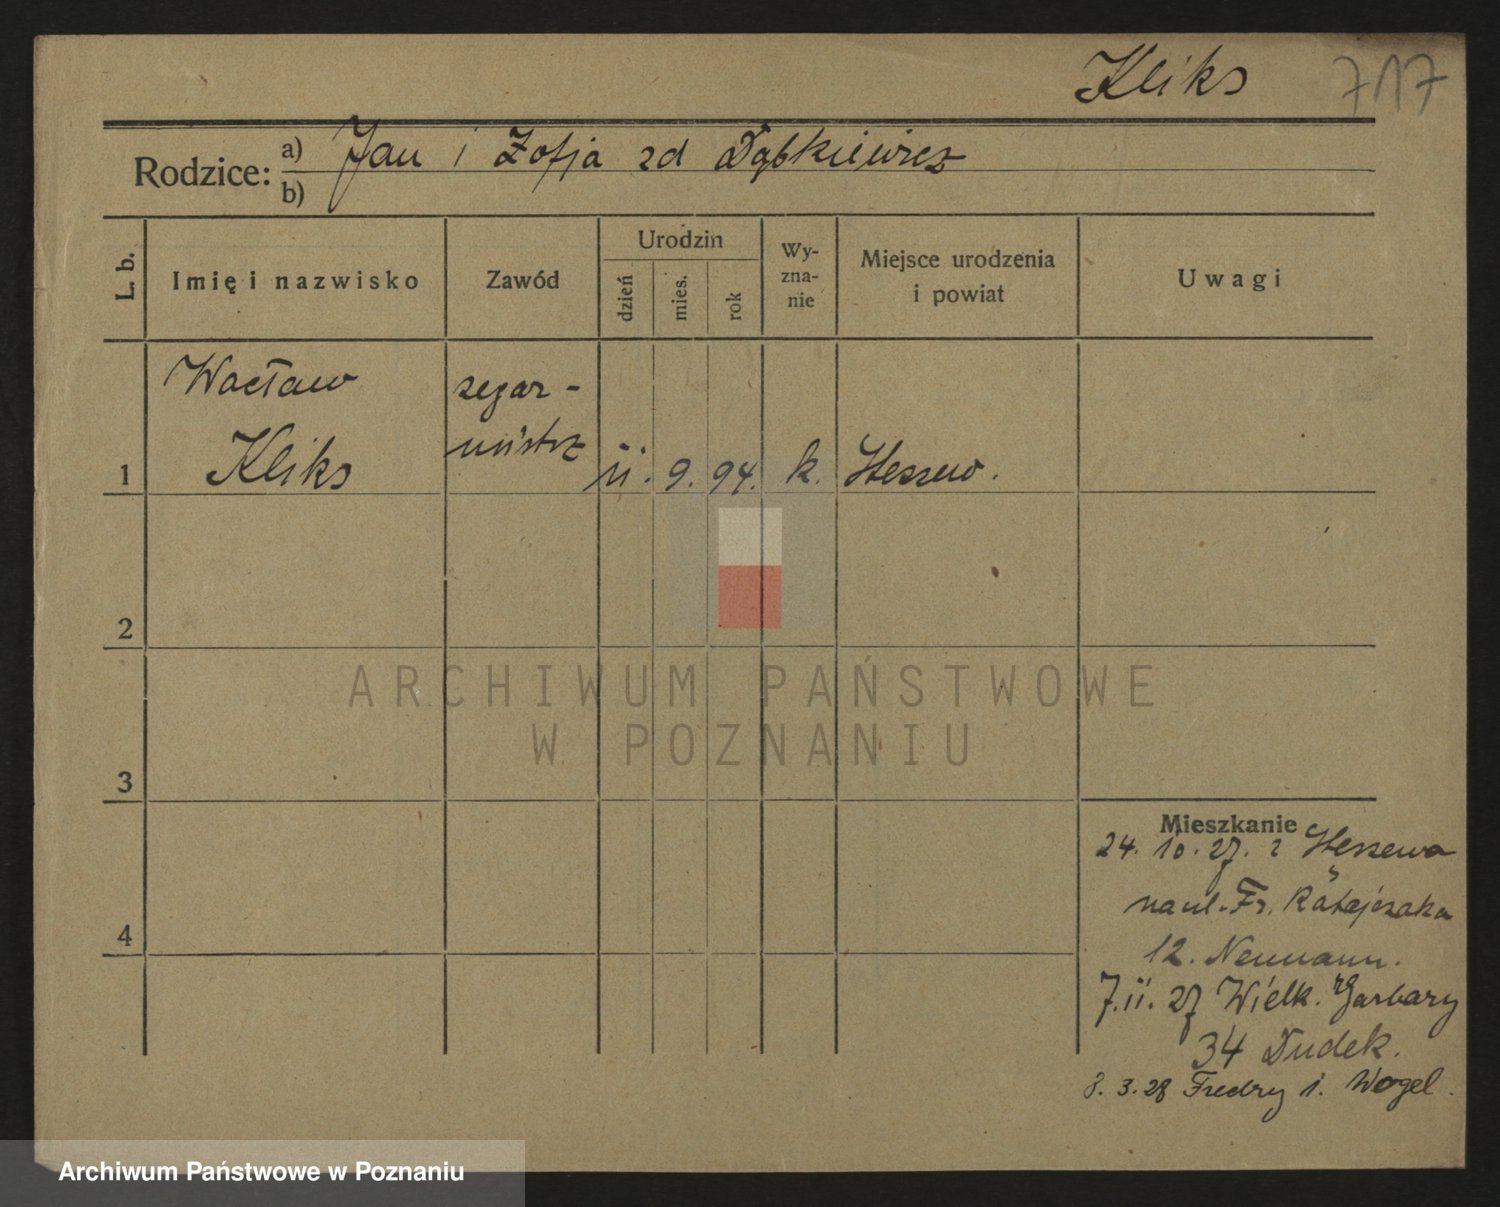 Kliks 717
Rodzice: a) Jan i Zofja zd Dąbkiewicz
b)
L. b.
Imię i nazwisko
Zawód
Urodzin
dzień
mies.
rok
Wy-
zna-
nie
Miejsce urodzenia
i powiat
Uwagi
Wacław
Kliks
zegar-
mistrz
1
11. 9. 94. k.
2
3
4
Mieszkanie
24. 10. 27. z
na ul. Fr. Ratajczaka
12. Neumann.
7. 11. 27 Wielk. Garbary
34 Dudek.
8. 3. 28 Fredry 1. Wogel.
ARCHIWUM PAŃSTWOWE
W POZNANIU
Archiwum Państwowe w Poznaniu